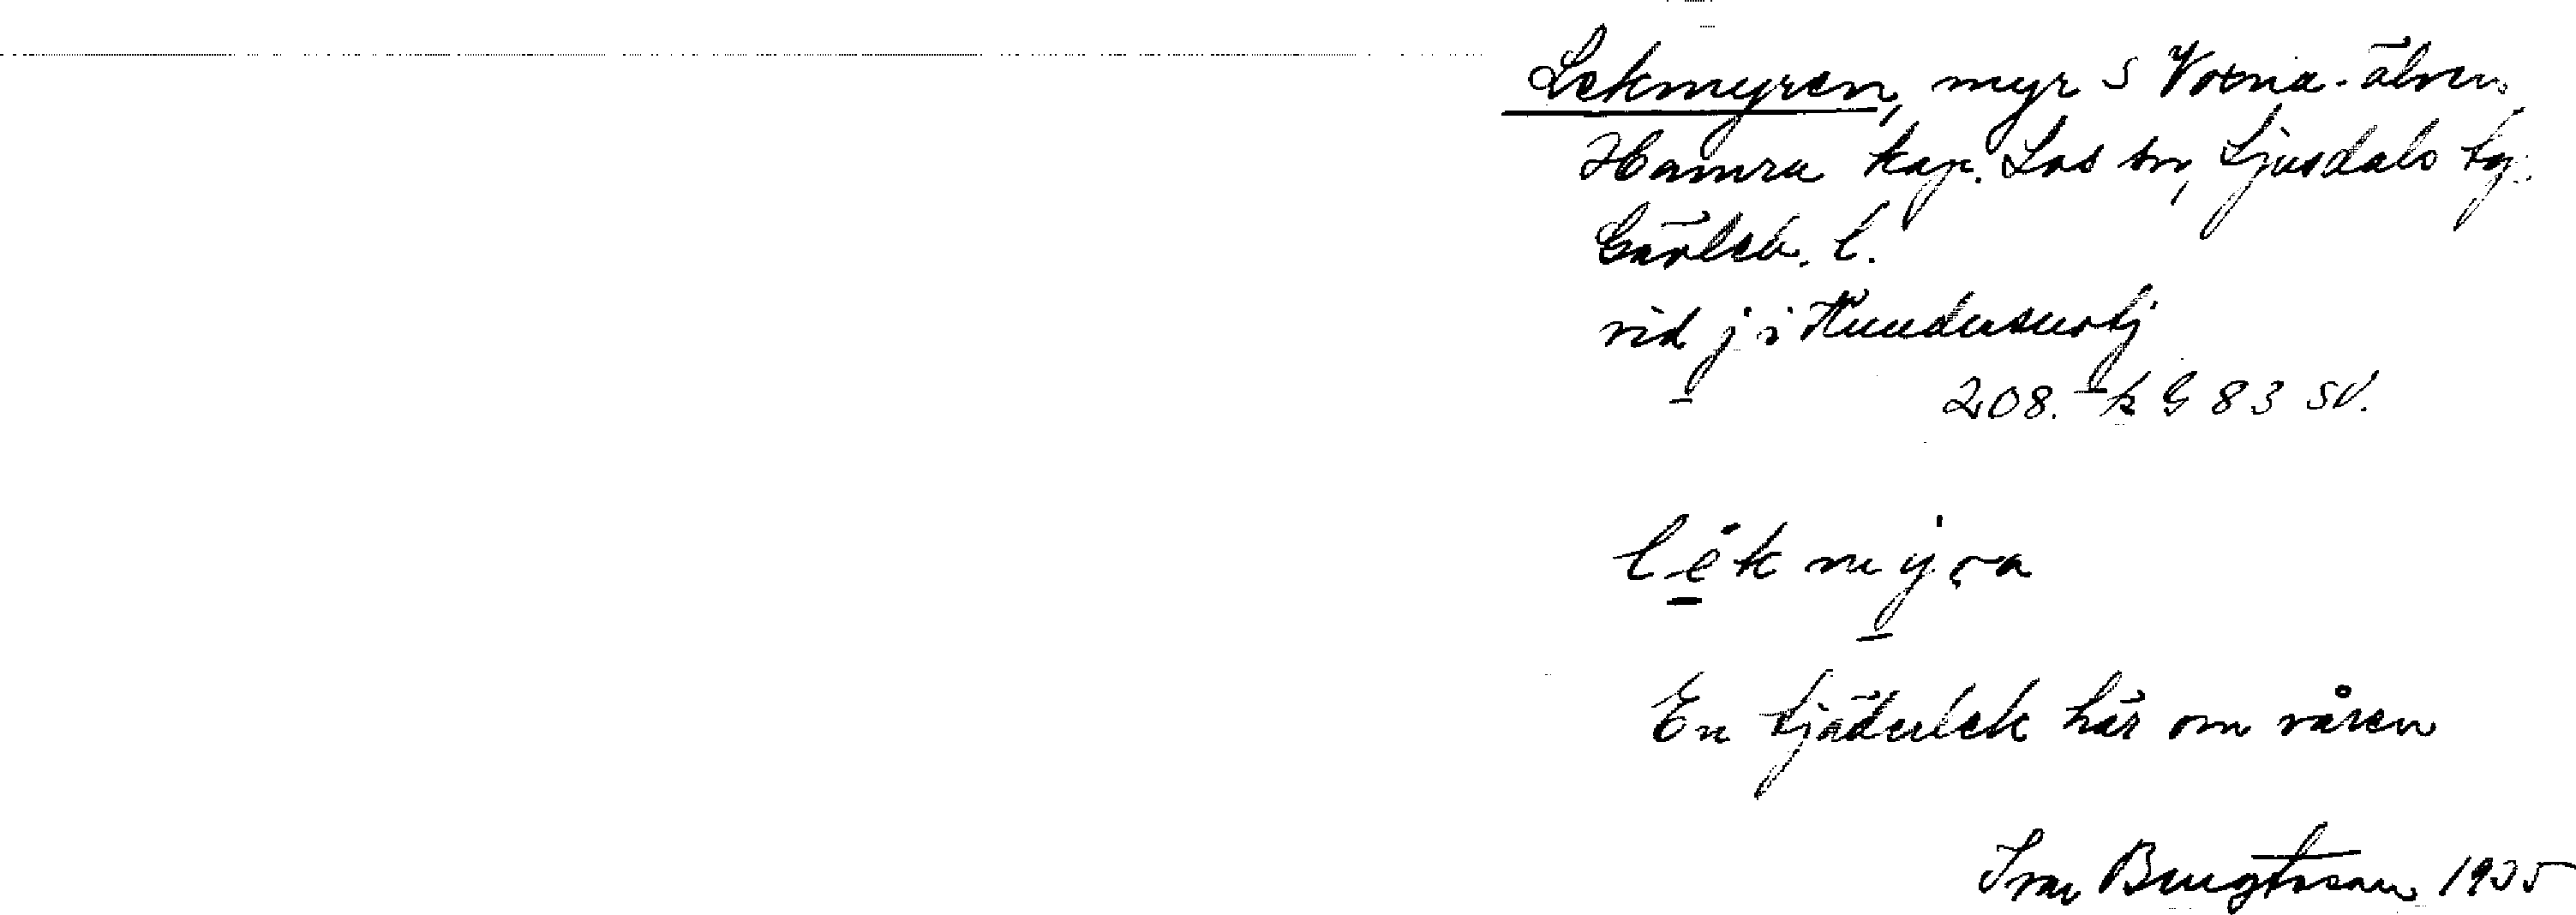 Lekmyren, myr S Voxna-älven,
Hamra kap. Los sn, Ljusdals tg.
Gävleb. l.
vid j i
208. k G 83 SV.
lekmyra
En tjäderlek här om våren
Ivar Bengtsson 1935